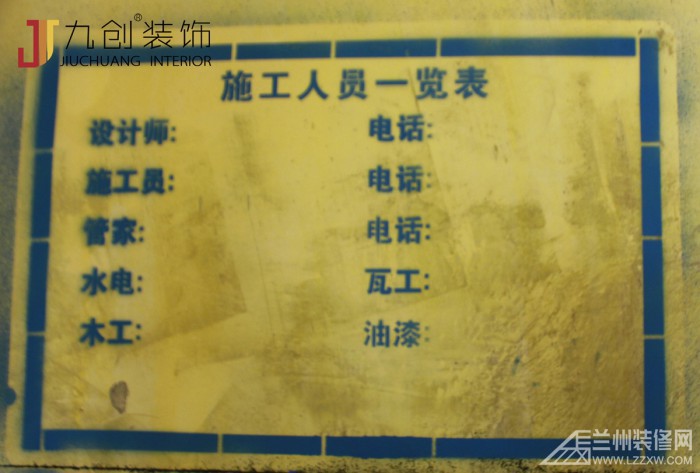 九创®装饰
JIUCHUANG INTERIOR
施工人员一览表
设计师: 电话:
施工员: 电话:
管家: 电话:
水电: 瓦工:
木工: 油漆:
兰州装修网
www.LZZXW.COM